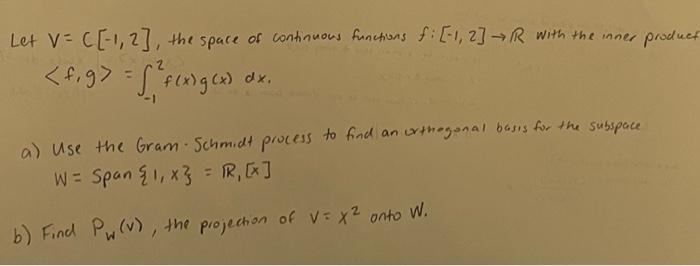 Let V = C[-1, 2], the space of continuous functions f: [-1, 2] → ℝ with the inner product
<f,g> = ∫₋₁² f(x)g(x) dx.
a) Use the Gram-Schmidt process to find an orthogonal basis for the subspace
W = Span {1, x} = ℝ₁[x]
b) Find P_W(v), the projection of v = x² onto W.